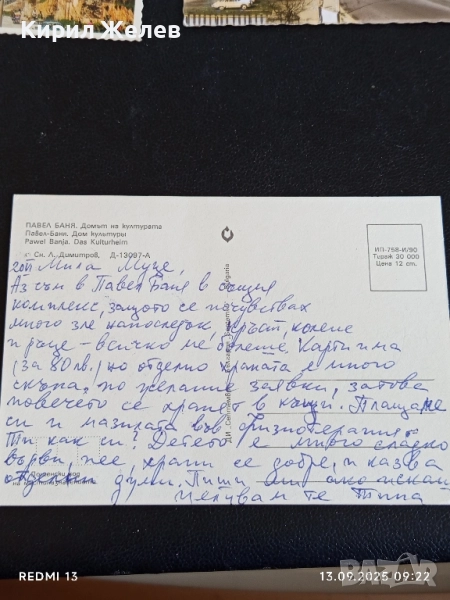 Кирил Желев
ПАВЕЛ БАНЯ. Домът на културата
Павел-Баня. Дом культуры
Pawel Banja. Das Kulturheim
Сн. Л. Димитров, Д-13097-А
ИП-758-И/90
Тираж 30 000
Цена 12 cm.
Мила Муце,
Аз съм в Павел Баня в същия
комплекс, защото се почувствах
много зле напоследък, кръст, колене
и ръце – всичко ме болеше. Карти има
(за 80 лв.), но отделно храната е много
скъпа, по желание заявки, затова
повечето се хранят в къщи. Плащаме
си и мазилата във физиотерапията
Ти как си? Детето е много сладко
върви вее, храни се добре, и казва
отделни думи. Пиши ако искаш
Целувам те
REDMI 13
13.09.2025 09:22
BAZAR